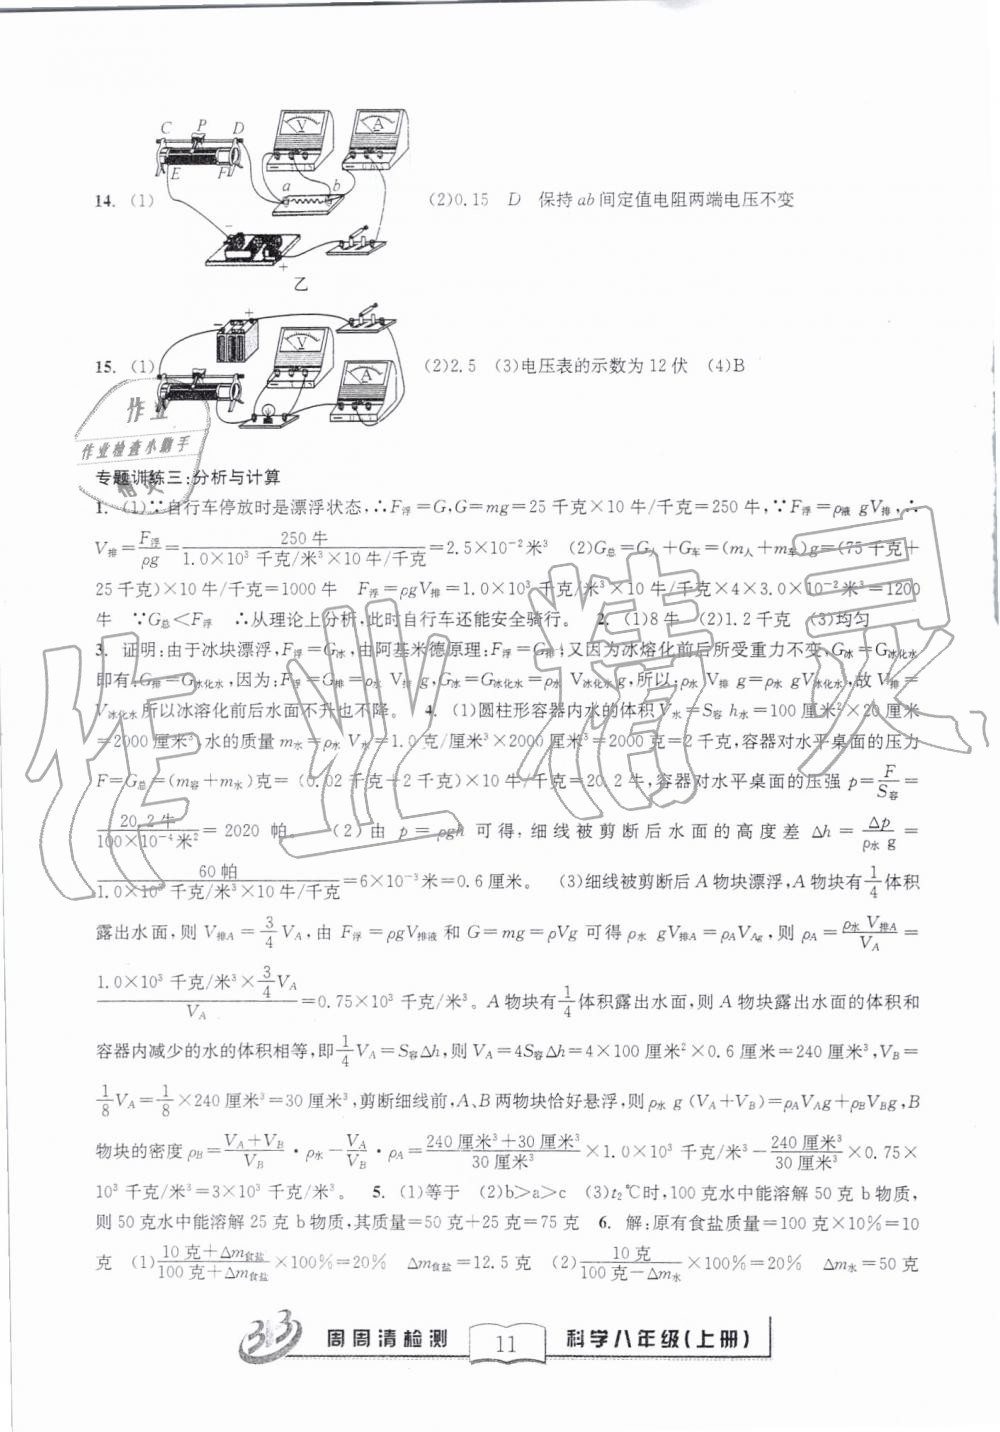 C P D
E F
V
A
a b
14. (1)
(2)0.15 D 保持ab间定值电阻两端电压不变
－
＋
乙
－ ＋
V
A
15. (1)
(2)2.5 (3)电压表的示数为12伏 (4)B
作业
作业检查小助手
精灵
专题训练三:分析与计算
1. (1)∵自行车停放时是漂浮状态,∴F浮=G,G=mg=25千克×10牛/千克=250牛,∵F浮=ρ液 gV排,∴
V排=F浮/ρg=250牛/(1.0×10³千克/米³×10牛/千克)=2.5×10⁻²米³ (2)G总=G人+G车=(m人+m车)g=(75千克+
25千克)×10牛/千克=1000牛 F浮=ρgV排=1.0×10³千克/米³×10牛/千克×4×3.0×10⁻²米³=1200
牛 ∵G总<F浮 ∴从理论上分析,此时自行车还能安全骑行。 2. (1)8牛 (2)1.2千克 (3)均匀
3. 证明:由于冰块漂浮,F浮=G冰,由阿基米德原理:F浮=G排;又因为冰熔化前后所受重力不变,G冰=G冰化水
即有:G排=G冰化水,因为:F浮=G排=ρ水 V排 g,G冰=G冰化水=ρ水 V冰化水g,所以:ρ水 V排 g=ρ水 gV冰化水,故V排=
V冰化水所以冰溶化前后水面不升也不降。 4. (1)圆柱形容器内水的体积V水=S容 h水=100厘米²×20厘米
=2000厘米³,水的质量m水=ρ水 V水=1.0克/厘米³×2000厘米³=2000克=2千克,容器对水平桌面的压力
F=G总=(m容+m水)克=(0.02千克+2千克)×10牛/千克=20.2牛,容器对水平桌面的压强p=F/S容=
20.2牛/(100×10⁻⁴米²)=2020帕。 (2)由p=ρgh可得,细线被剪断后水面的高度差Δh=Δp/(ρ水 g)=
60帕/(1.0×10³千克/米³×10牛/千克)=6×10⁻³米=0.6厘米。 (3)细线被剪断后A物块漂浮,A物块有1/4体积
露出水面,则V排A=3/4 VA,由F浮=ρgV排液和G=mg=ρVg可得ρ水 gV排A=ρAVAg,则ρA=ρ水 V排A/VA=
(1.0×10³千克/米³×3/4 VA)/VA=0.75×10³千克/米³。A物块有1/4体积露出水面,则A物块露出水面的体积和
容器内减少的水的体积相等,即1/4 VA=S容Δh,则VA=4S容Δh=4×100厘米²×0.6厘米=240厘米³,VB=
1/8 VA=1/8×240厘米³=30厘米³,剪断细线前,A、B两物块恰好悬浮,则ρ水 g(VA+VB)=ρAVAg+ρBVBg,B
物块的密度ρB=(VA+VB)/VB·ρ水-VA/VB·ρA=(240厘米³+30厘米³)/30厘米³×1.0×10³千克/米³-240厘米³/30厘米³×0.75×
10³千克/米³=3×10³千克/米³。 5. (1)等于 (2)b>a>c (3)t₂℃时,100克水中能溶解50克b物质,
则50克水中能溶解25克b物质,其质量=50克+25克=75克 6. 解:原有食盐质量=100克×10%=10
克 (1)(10克+Δm食盐)/(100克+Δm食盐)×100%=20% Δm食盐=12.5克 (2)10克/(100克-Δm水)×100%=20% Δm水=50克
作业精灵
周周清检测 11 科学八年级(上册)